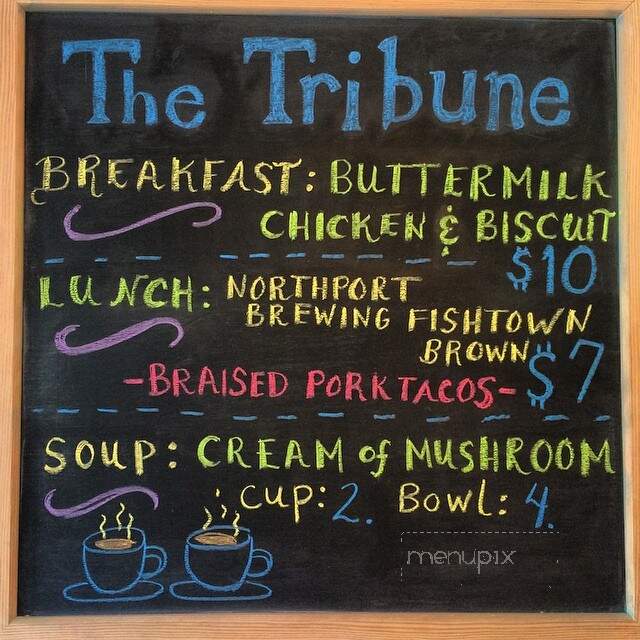 The Tribune
BREAKFAST: BUTTERMILK
CHICKEN & BISCUIT
$10
LUNCH: NORTHPORT
BREWING FISHTOWN
BROWN
-BRAISED PORK TACOS- $7
SOUP: CREAM of MUSHROOM
CUP: 2. BOWL: 4.
menupix